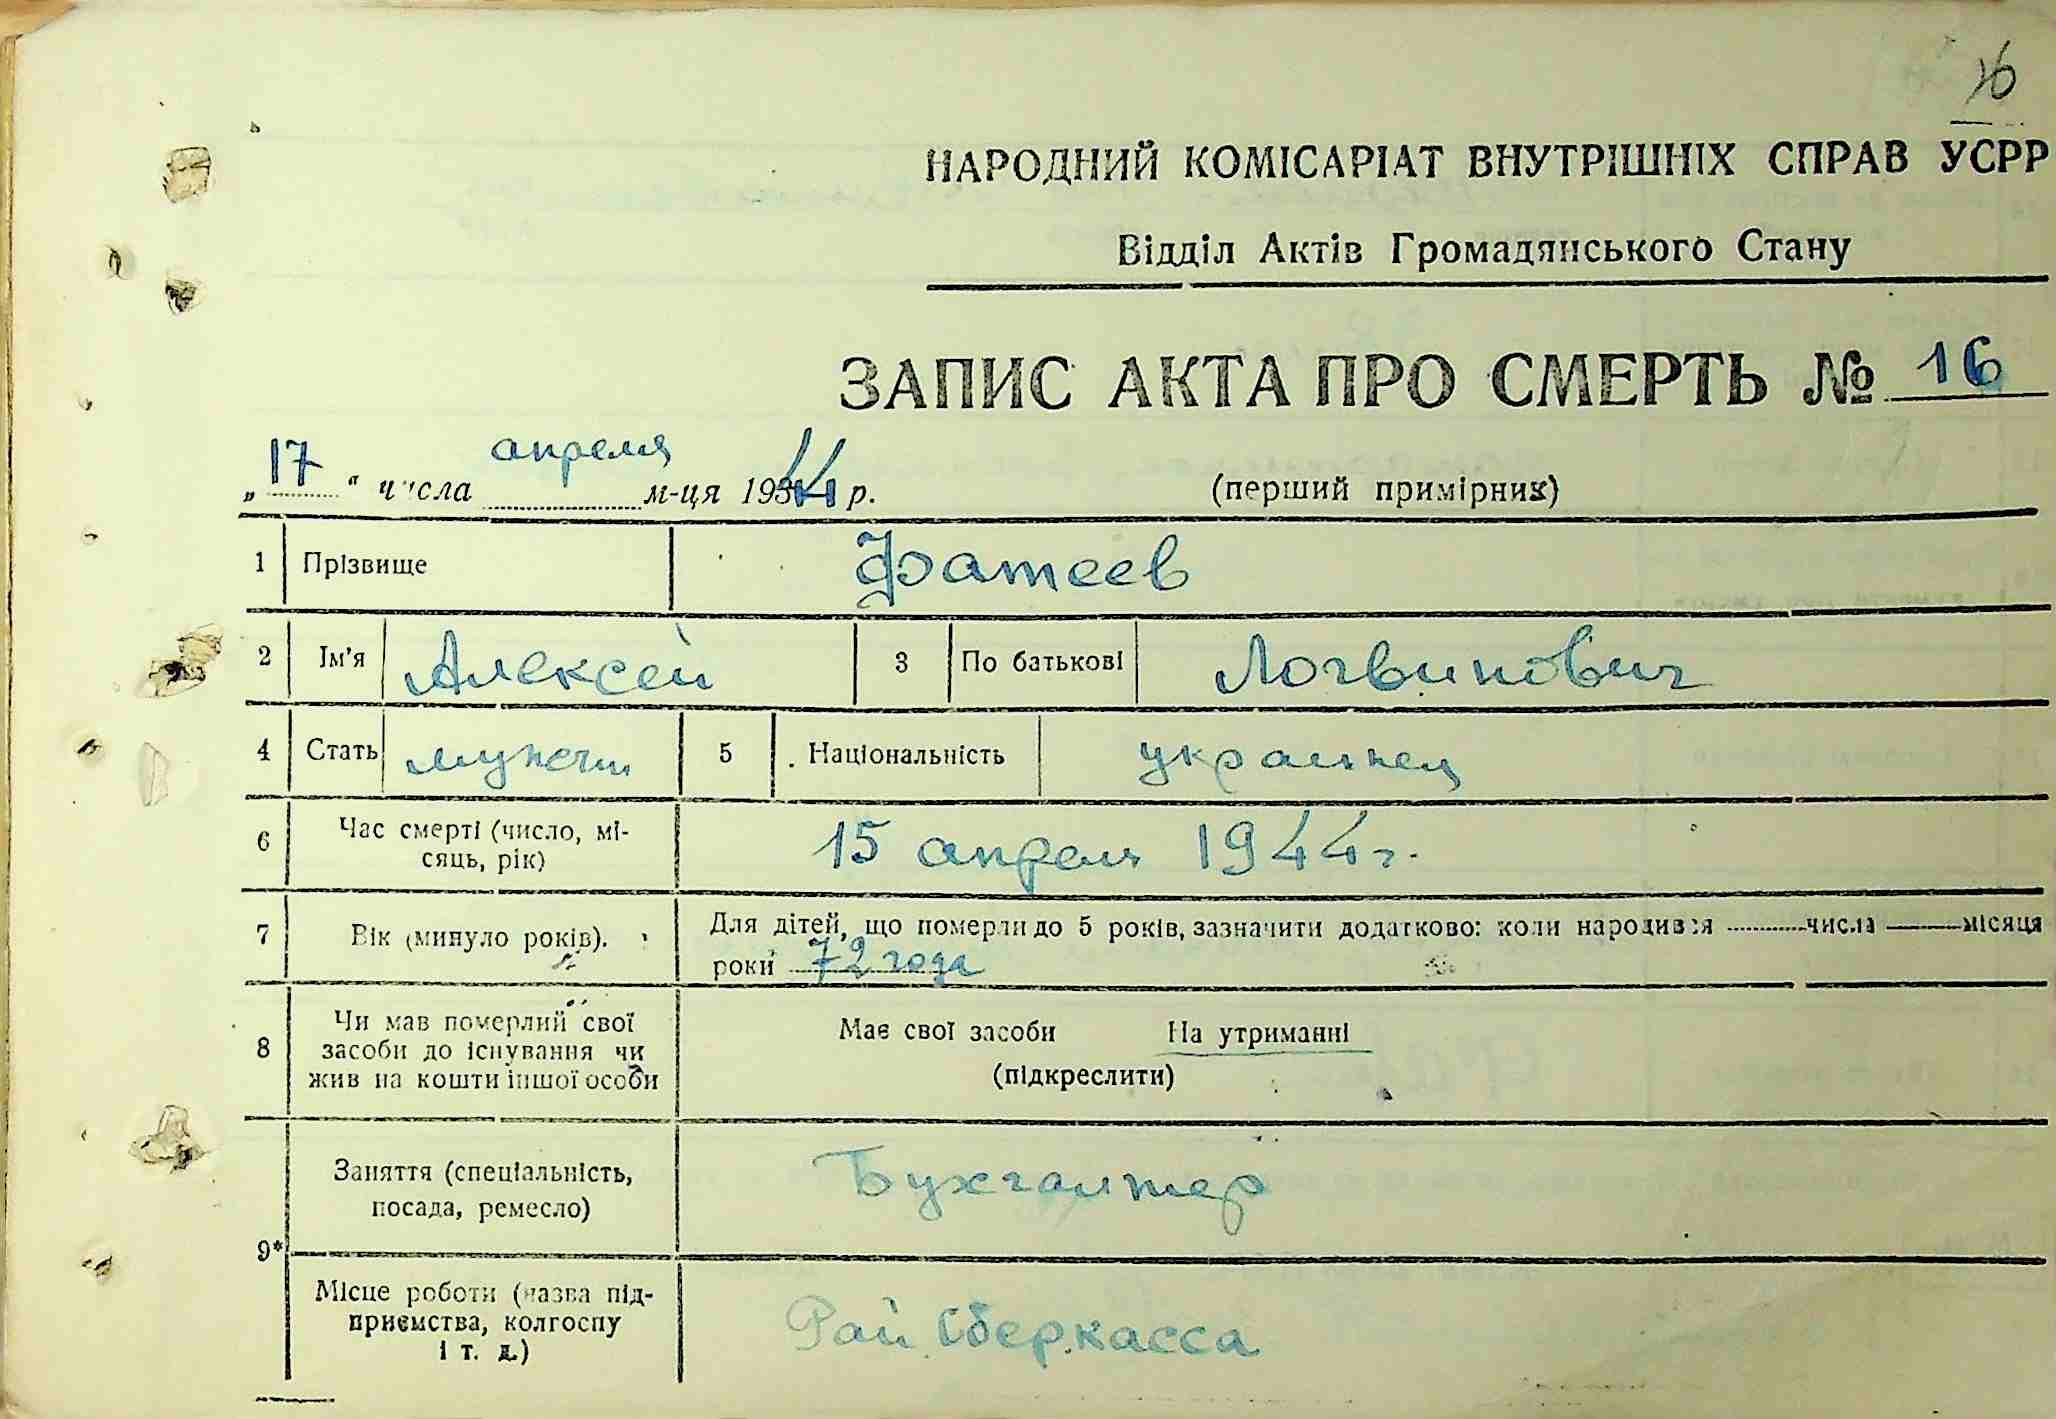 16
НАРОДНИЙ КОМІСАРІАТ ВНУТРІШНІХ СПРАВ УСРР
Відділ Актів Громадянського Стану
ЗАПИС АКТА ПРО СМЕРТЬ № 16
„17“ числа апреля м-ця 1944 р. (перший примірник)
1 Прізвище Фатеев
2 Ім'я Алексей 3 По батькові Логвинович
4 Стать мужеск 5 Національність украинец
6 Час смерті (число, мі-
сяць, рік) 15 апреля 1944 г.
7 Вік (минуло років). Для дітей, що померли до 5 років, зазначити додатково: коли народився числа місяця
роки 72 года
8 Чи мав померлий свої
засоби до існування чи
жив на кошти іншої особи
Має свої засоби На утриманні
(підкреслити)
9* Заняття (спеціальність,
посада, ремесло) Бухгалтер
Місце роботи (назва під-
приємства, колгоспу
і т. д.) Рай. Сберкасса